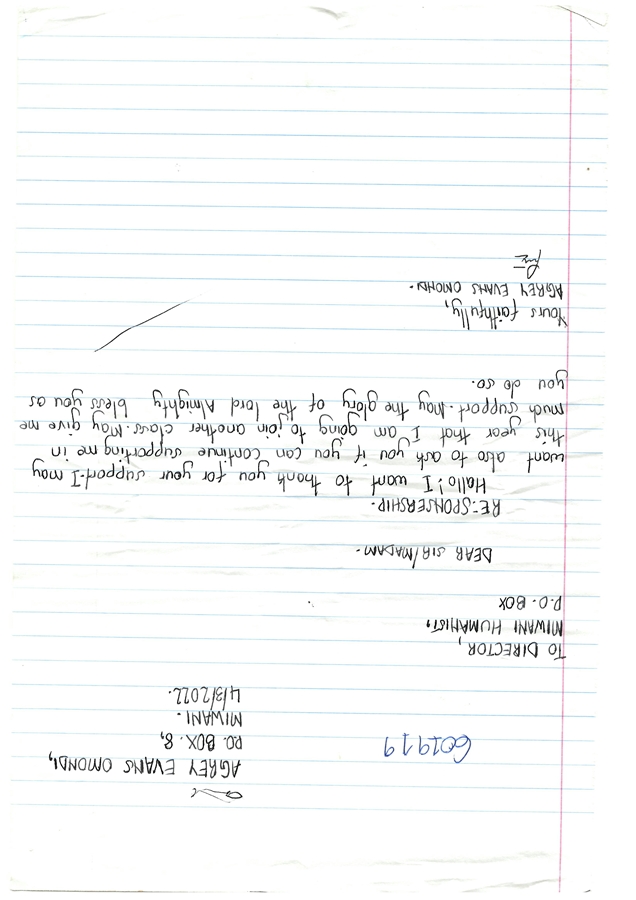 601919
AGREY EVANS OMONDI,
P.O. BOX. 8,
MIWANI.
4/3/2022.
TO DIRECTOR,
MIWANI HUMANIST.
P.O. BOX
DEAR SIR/MADAM.
RE:-SPONSERSHIP.
Hallo! I want to thank you for your support. I may
want also to ask you if you can continue supporting me in
this year that I am going to join another class. May give me
much support. May the glory of the lord Almighty bless you as
you do so.
Yours faithfully,
AGREY EVANS OMONDI.